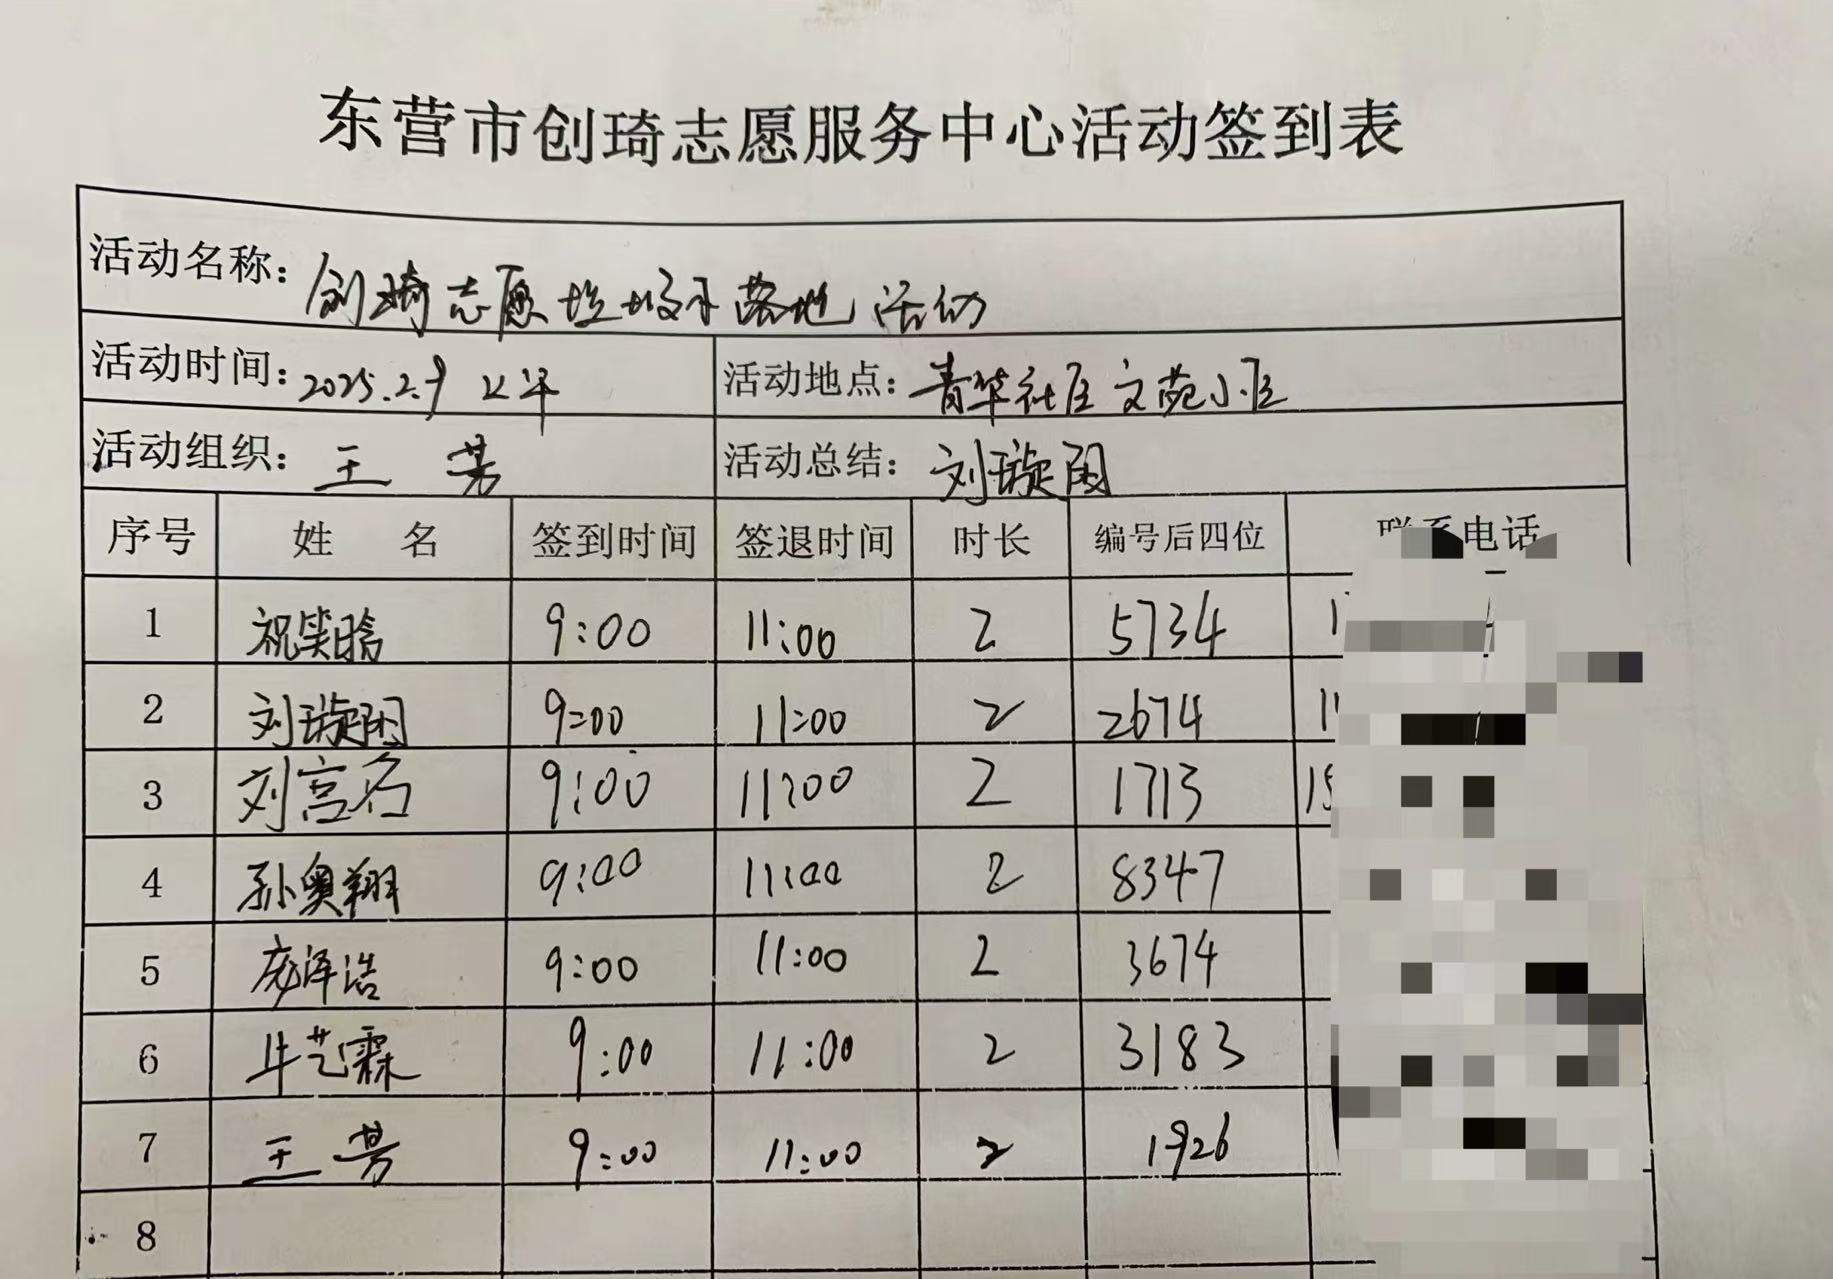 东营市创琦志愿服务中心活动签到表
活动名称：创琦志愿垃圾不落地活动
活动时间：2025.2.9 上午 活动地点：青华社区文苑小区
活动组织：王芳 活动总结：刘璇闵
序号 姓名 签到时间 签退时间 时长 编号后四位 联系电话
1 祝笑晗 9:00 11:00 2 5734
2 刘璇闵 9:00 11:00 2 2674
3 刘宫石 9:00 11:00 2 1713
4 孙奥翔 9:00 11:00 2 8347
5 庞泽浩 9:00 11:00 2 3674
6 牛艺霖 9:00 11:00 2 3183
7 王芳 9:00 11:00 2 1926
8